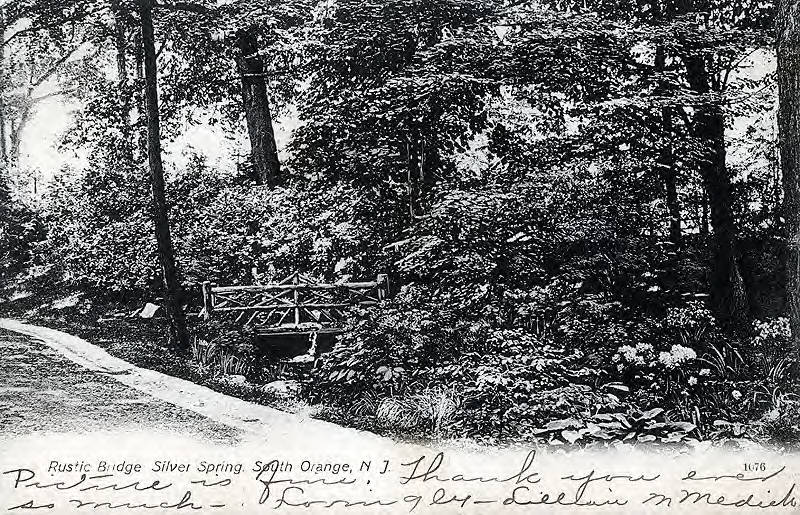 Rustic Bridge Silver Spring. South Orange, N J. 1076
Picture is fine. Thank you ever
so much-. Lovingly- Lillian M